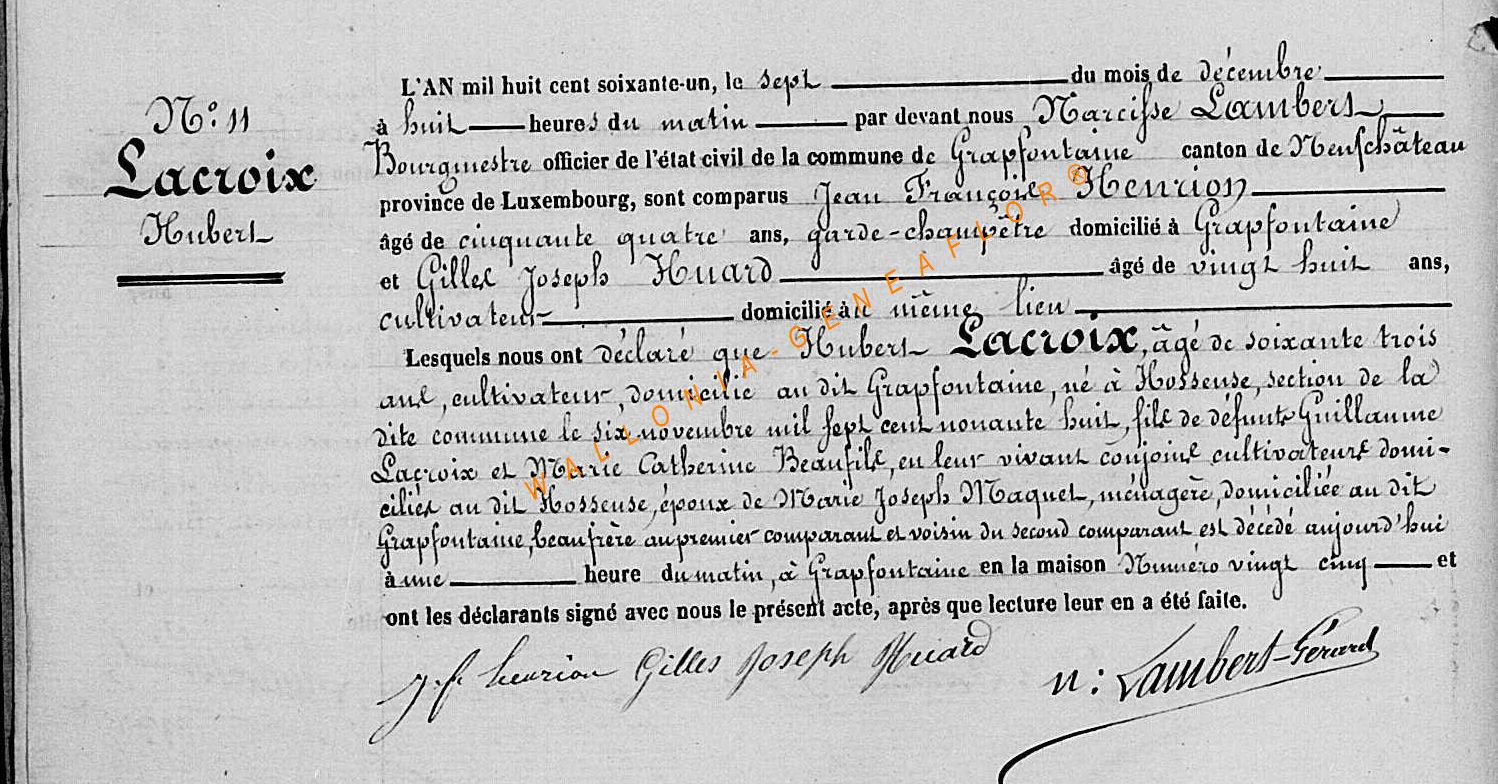 N.º 11
Lacroix
Hubert
L'AN mil huit cent soixante-un, le sept du mois de décembre
à huit heures du matin par devant nous Narcisse Lambert,
Bourgmestre officier de l'état civil de la commune de Grapfontaine canton de Neufchâteau
province de Luxembourg, sont comparus Jean François Henrion
âgé de cinquante quatre ans, garde-champêtre domicilié à Grapfontaine
et Gilles Joseph Huard âgé de vingt huit ans,
cultivateur domicilié au même lieu
Lesquels nous ont déclaré que Hubert Lacroix, âgé de soixante trois
ans, cultivateur, domicilié au dit Grapfontaine, né à Hosseuse, section de la
dite commune le six novembre mil sept cent nonante huit, fils de défunts Guillaume
Lacroix et Marie Catherine Beaufils, en leur vivant conjoins cultivateurs domi-
ciliés au dit Hosseuse, époux de Marie Joseph Maquet, ménagère, domiciliée au dit
Grapfontaine, beaufrère au premier comparant et voisin du second comparant est décédé aujourd'hui
à une heure du matin, à Grapfontaine en la maison Numéro vingt cinq et
ont les déclarants signé avec nous le présent acte, après que lecture leur en a été faite.
J. f henrion Gilles Joseph Huard
n: Lambert-Gérard
WALLONIA-GENEAFLOR®